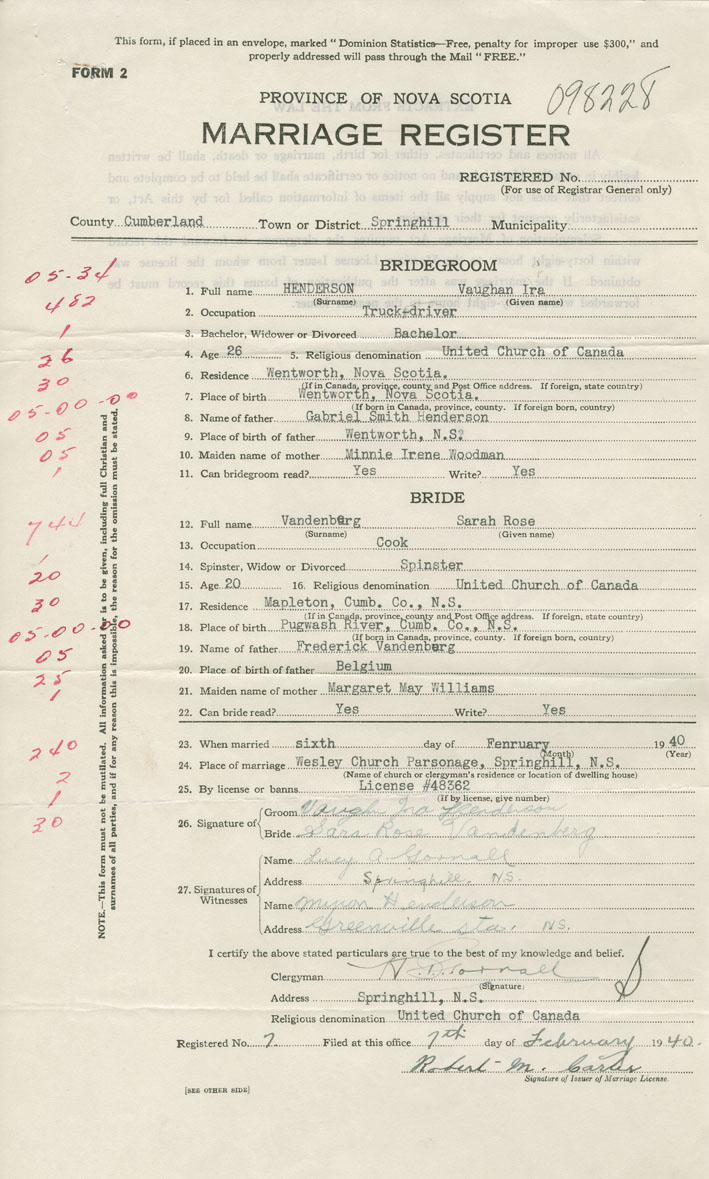 This form, if placed in an envelope, marked "Dominion Statistics—Free, penalty for improper use $300," and
properly addressed will pass through the Mail "FREE."
FORM 2
098228
PROVINCE OF NOVA SCOTIA
MARRIAGE REGISTER
REGISTERED No.
(For use of Registrar General only)
County Cumberland Town or District Springhill Municipality
BRIDEGROOM
05-34
1. Full name HENDERSON Vaughan Ira
(Surname) (Given name)
482
2. Occupation Truck-driver
1
3. Bachelor, Widower or Divorced Bachelor
26
4. Age 26 5. Religious denomination United Church of Canada
30
6. Residence Wentworth, Nova Scotia.
(If in Canada, province, county and Post Office address. If foreign, state country)
05-00-00
7. Place of birth Wentworth, Nova Scotia.
(If born in Canada, province, county. If foreign born, country)
8. Name of father Gabriel Smith Henderson
05
9. Place of birth of father Wentworth, N.S?
05
10. Maiden name of mother Minnie Irene Woodman
1
11. Can bridegroom read? Yes Write? Yes
BRIDE
744
12. Full name Vandenberg Sarah Rose
(Surname) (Given name)
13. Occupation Cook
1
14. Spinster, Widow or Divorced Spinster
20
15. Age 20 16. Religious denomination United Church of Canada
30
17. Residence Mapleton, Cumb. Co., N.S.
(If in Canada, province, county and Post Office address. If foreign, state country)
05-00-00
18. Place of birth Pugwash River, Cumb. Co., N.S.
(If born in Canada, province, county. If foreign born, country)
05
19. Name of father Frederick Vandenberg
25
20. Place of birth of father Belgium
1
21. Maiden name of mother Margaret May Williams
22. Can bride read? Yes Write? Yes
240
23. When married sixth day of Fenruary 1940
(Month) (Year)
2
24. Place of marriage Wesley Church Parsonage, Springhill, N.S.
(Name of church or clergyman's residence or location of dwelling house)
1
25. By license or banns License #48362
(If by license, give number)
30
26. Signature of Groom Vaugh Ira Henderson
Bride Sara Rose Vandenberg
27. Signatures of Witnesses
Name Lucy A. Gornall
Address Springhill. NS.
Name Minor Henderson
Address Greenville Sta. NS.
I certify the above stated particulars are true to the best of my knowledge and belief.
Clergyman Gornall
(Signature)
Address Springhill, N.S.
Religious denomination United Church of Canada
Registered No. 7 Filed at this office 7th day of February 1940.
Robert M. Carter
Signature of Issuer of Marriage License.
[SEE OTHER SIDE]
NOTE.—This form must not be mutilated. All information asked for is to be given, including full Christian and
surnames of all parties, and if for any reason this is impossible, the reason for the omission must be stated.